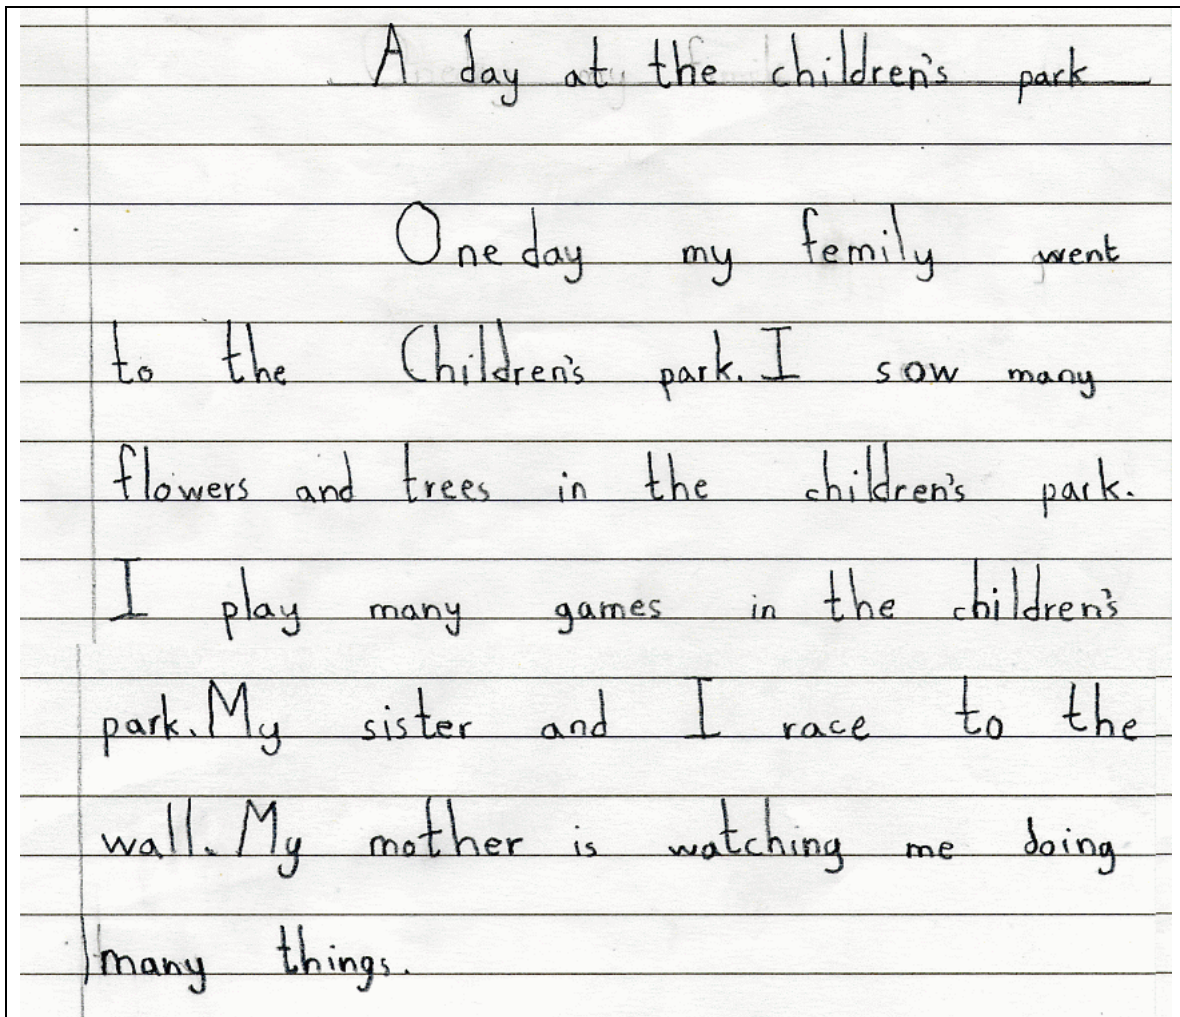 A day at the children's park
One day my femily went
to the Children's park. I sow many
flowers and trees in the children's park.
I play many games in the children's
park. My sister and I race to the
wall. My mother is watching me doing
many things.